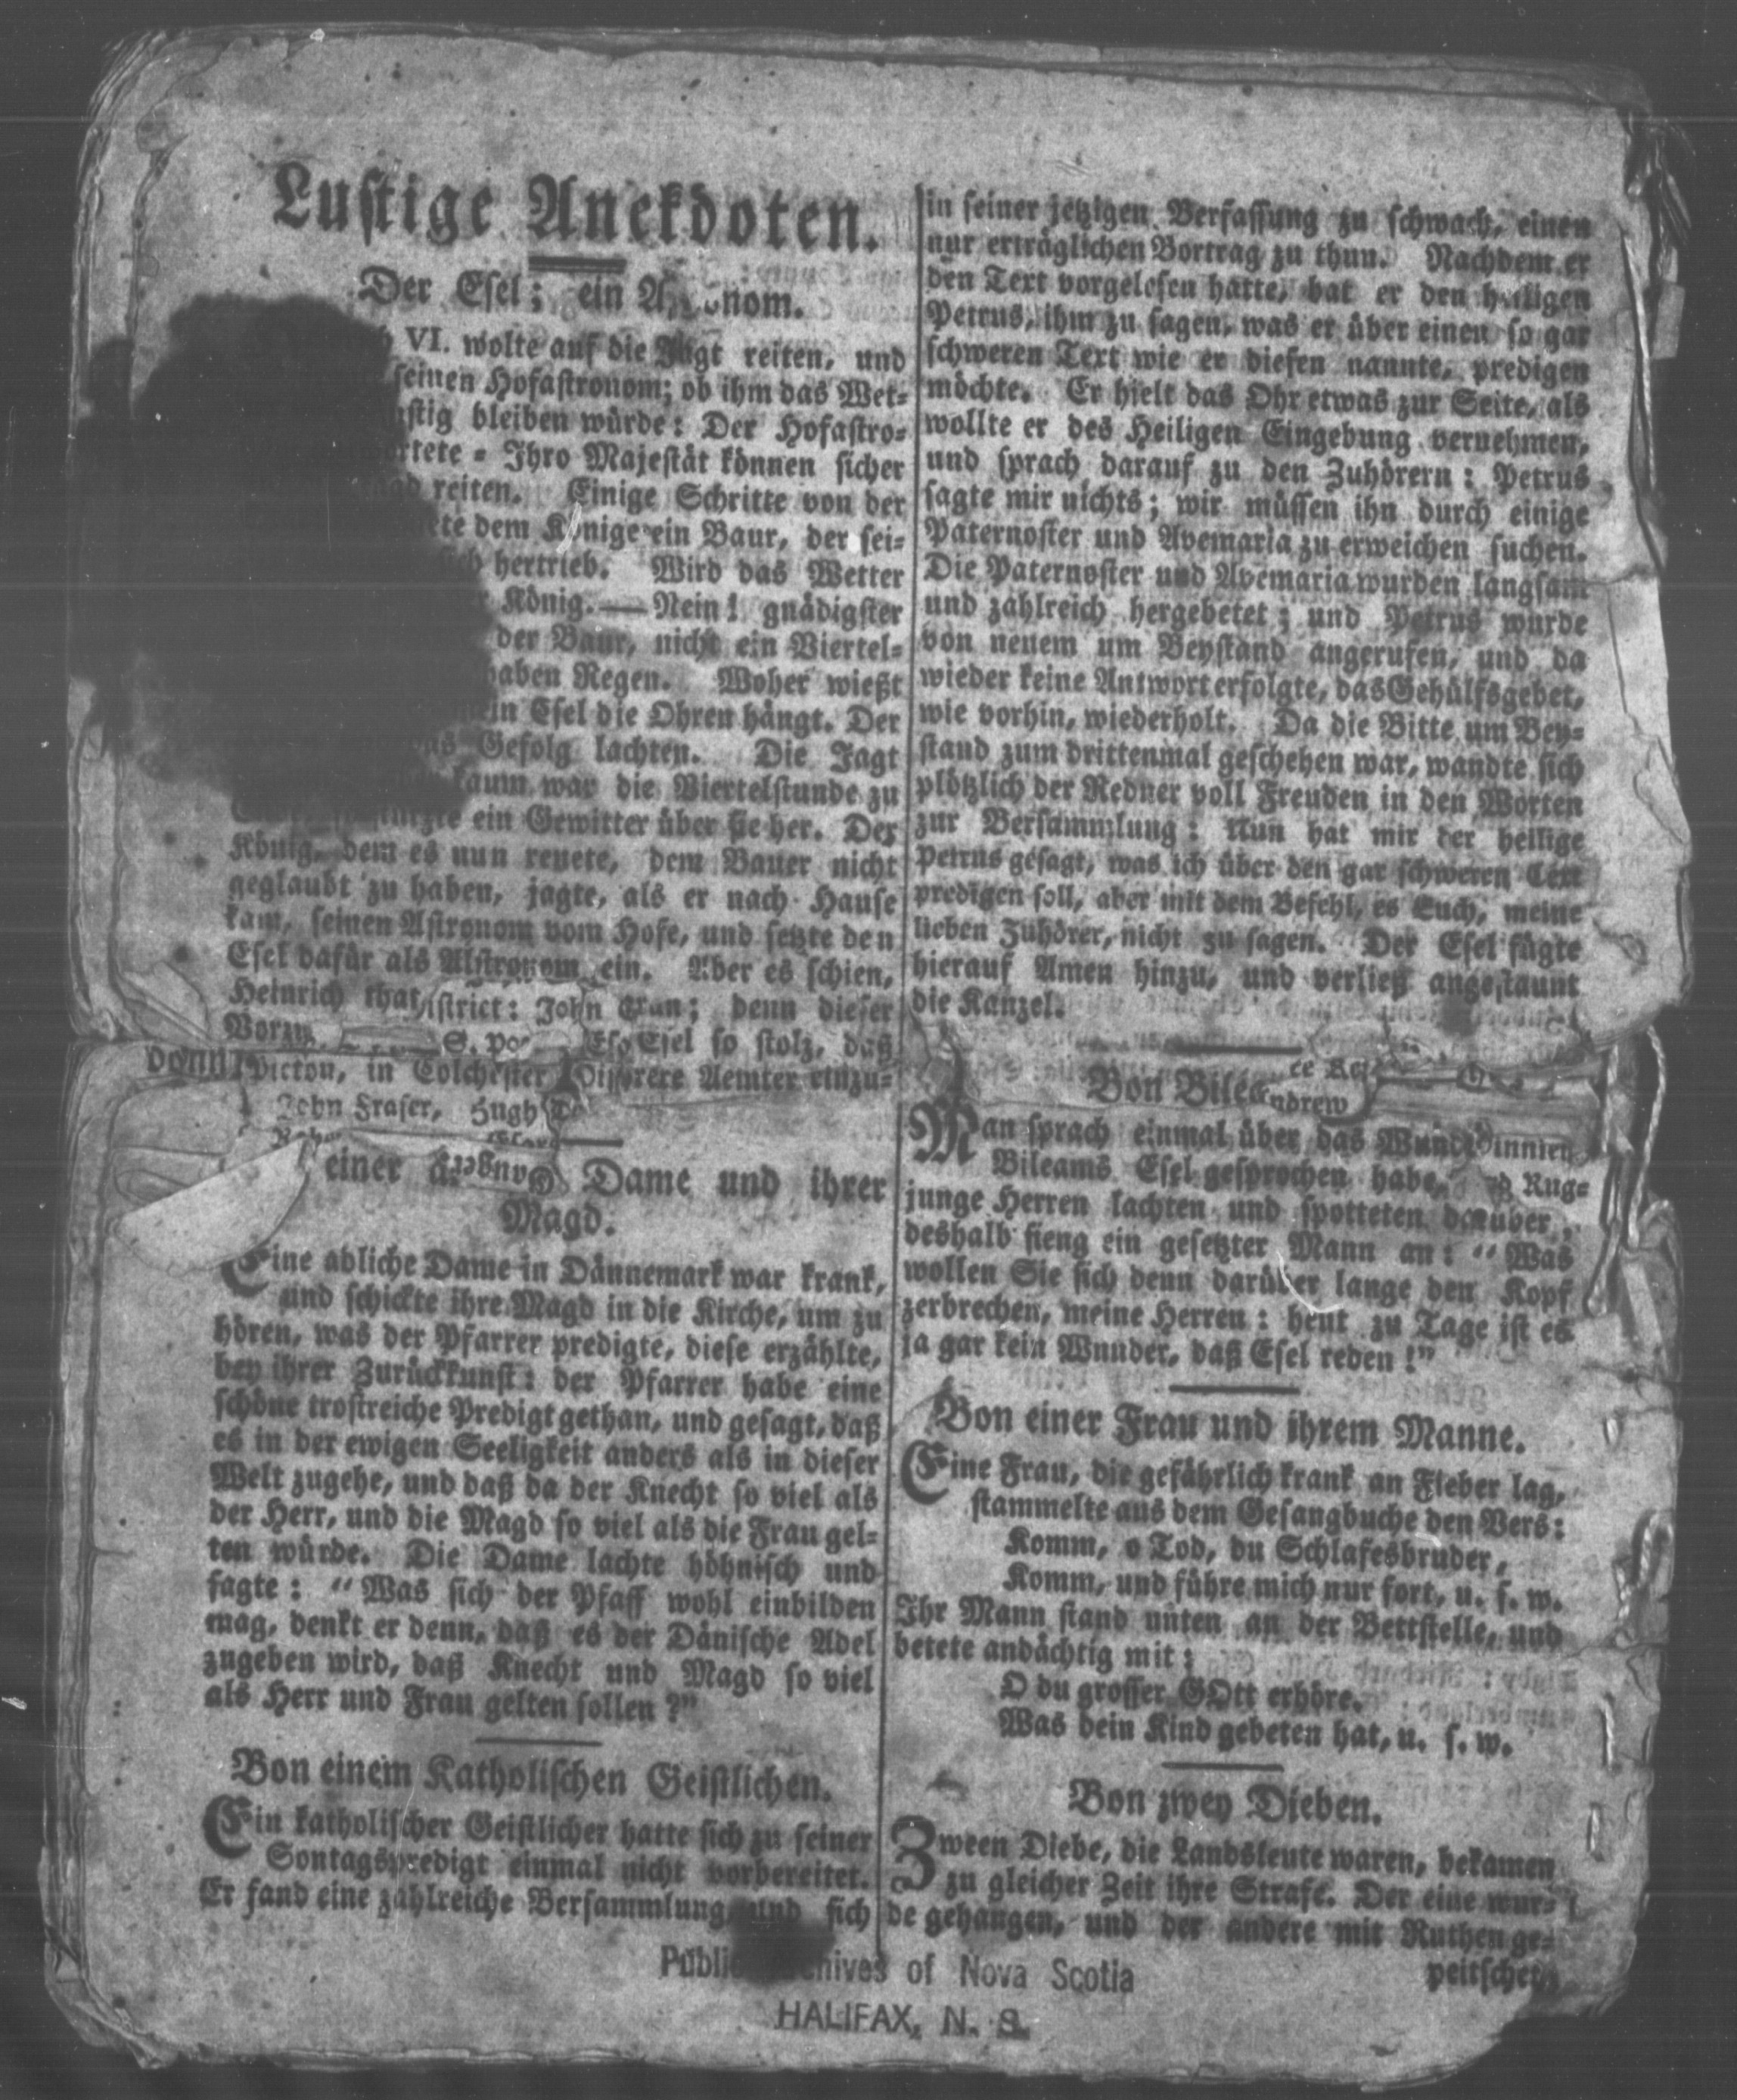 Lustige Anekdoten.
Der Esel; ein nom.
VI. wolte auf die Jagt reiten, und
seinen Hofastronom; ob ihm das Wet-
stig bleiben würde: Der Hofastro-
rtete = Ihro Majestät können sicher
reiten. Einige Schritte von der
te dem Könige ein Baur, der sei-
hertrieb. Wird das Wetter
König.—Nein! gnädigster
der Baur, nicht ein Viertel-
haben Regen. Woher wießt
Esel die Ohren hängt. Der
Gefolg lachten. Die Jagt
kaum war die Viertelstunde zu
ein Gewitter über sie her. Der
König, dem es nun reuete, dem Bauer nicht
geglaubt zu haben, jagte, als er nach Hause
kam, seinen Astronom vom Hofe, und setzte den
Esel dafür als Alstronom ein. Aber es schien,
Heinrich that istrict: John denn dieser
Esel so stolz, daß
Pictou, in Colchester Aemter einzu-
John Fraser, Hugh
einer Dame und ihrer
Magd.
Eine adliche Dame in Dännemark war krank,
und schickte ihre Magd in die Kirche, um zu
hören, was der Pfarrer predigte, diese erzählte,
bey ihrer Zurückkunft: der Pfarrer habe eine
schöne trostreiche Predigt gethan, und gesagt, daß
es in der ewigen Seeligkeit anders als in dieser
Welt zugehe, und daß da der Knecht so viel als
der Herr, und die Magd so viel als die Frau gel-
ten würde. Die Dame lachte höhnisch und
sagte: "Was sich der Pfaff wohl einbilden
mag, denkt er denn, daß es der Dänische Adel
zugeben wird, daß Knecht und Magd so viel
als Herr und Frau gelten sollen?"
Von einem Katholischen Geistlichen.
Ein katholischer Geistlicher hatte sich zu seiner
Sontagspredigt einmal nicht vorbereitet.
Er fand eine zahlreiche Versammlung und sich
in seiner jetzigen Verfassung zu schwach, einen
nur erträglichen Vortrag zu thun. Nachdem er
den Text vorgelesen hatte, bat er den heiligen
Petrus, ihm zu sagen, was er über einen so gar
schweren Text wie er diesen nannte, predigen
möchte. Er hielt das Ohr etwas zur Seite, als
wollte er des Heiligen Eingebung vernehmen,
und sprach darauf zu den Zuhörern: Petrus
sagte mir nichts; wir müssen ihn durch einige
Paternoster und Avemaria zu erweichen suchen.
Die Paternoster und Avemaria wurden langsam
und zahlreich hergebetet; und Petrus wurde
von neuem um Beystand angerufen, und da
wieder keine Antwort erfolgte, das Gehülfsgebet,
wie vorhin, wiederholt. Da die Bitte um Bey-
stand zum drittenmal geschehen war, wandte sich
plötzlich der Redner voll Freuden in den Worten
zur Versammlung: Nun hat mir der heilige
Petrus gesagt, was ich über den gar schweren Text
predigen soll, aber mit dem Befehl, es Euch, meine
lieben Zuhörer, nicht zu sagen. Der Esel fügte
hierauf Amen hinzu, und verließ angestaunt
die Kanzel.
Von
Man sprach einmal über das
Bileams Esel gesprochen habe,
junge Herren lachten und spotteten darüber,
deshalb fieng ein gesetzter Mann an: "Was
wollen Sie sich denn darüber lange den Kopf
zerbrechen, meine Herren: heut zu Tage ist es
ja gar kein Wunder, daß Esel reden!"
Von einer Frau und ihrem Manne.
Eine Frau, die gefährlich krank an Fieber lag,
stammelte aus dem Gesangbuche den Vers:
Komm, o Tod, du Schlafesbruder,
Komm, und führe mich nur fort, u. s. w.
Ihr Mann stand unten an der Bettstelle, und
betete andächtig mit:
O du grosser GOtt erhöre,
Was dein Kind gebeten hat, u. s. w.
Von zwey Dieben.
Zween Diebe, die Landsleute waren, bekamen
zu gleicher Zeit ihre Strafe. Der eine wur-
de gehangen, und der andere mit Ruthen ge-
peitschet
Public Archives of Nova Scotia
HALIFAX, N. S.